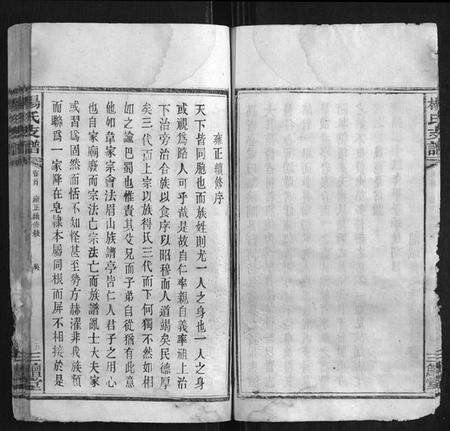 楊氏支譜
雍正續修序
天下皆同胞也而族姓則尤一人之身也一人之身
或視為路人可乎哉是故自仁率親自義率祖上治
下治旁治合族以食序以昭穆而人道竭矣民德厚
矣三代而上宗以族得民三代而下何獨不然如相
如之諭巴蜀也惟責其父兄而子弟自從猶有此意
他如韋家宗會法眉山族譜亭皆仁人君子之用心
也自家廟廢而宗法亡宗法亡而族譜亂士大夫家
或習為固然而恬不知怪甚至勢方赫濯非我族類
而聯為一家降在皂隸本屬同根而屏不相接於是
楊氏支譜
卷首
雍正續修序
三鱣堂